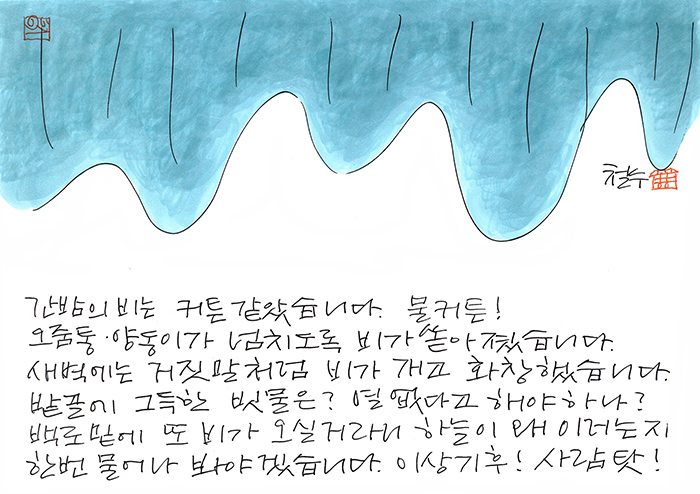 철수
간밤의 비는 커튼 같았습니다. 물커튼!
오줌통·양동이가 넘치도록 비가 쏟아졌습니다.
새벽에는 거짓말처럼 비가 개고 화창했습니다.
밭골에 그득한 빗물은? 열없다고 해야하나?
백로밑에 또 비가 오실거라니 하늘이 왜 이러는지
한번 물어나 봐야겠습니다. 이상기후! 사람탓!